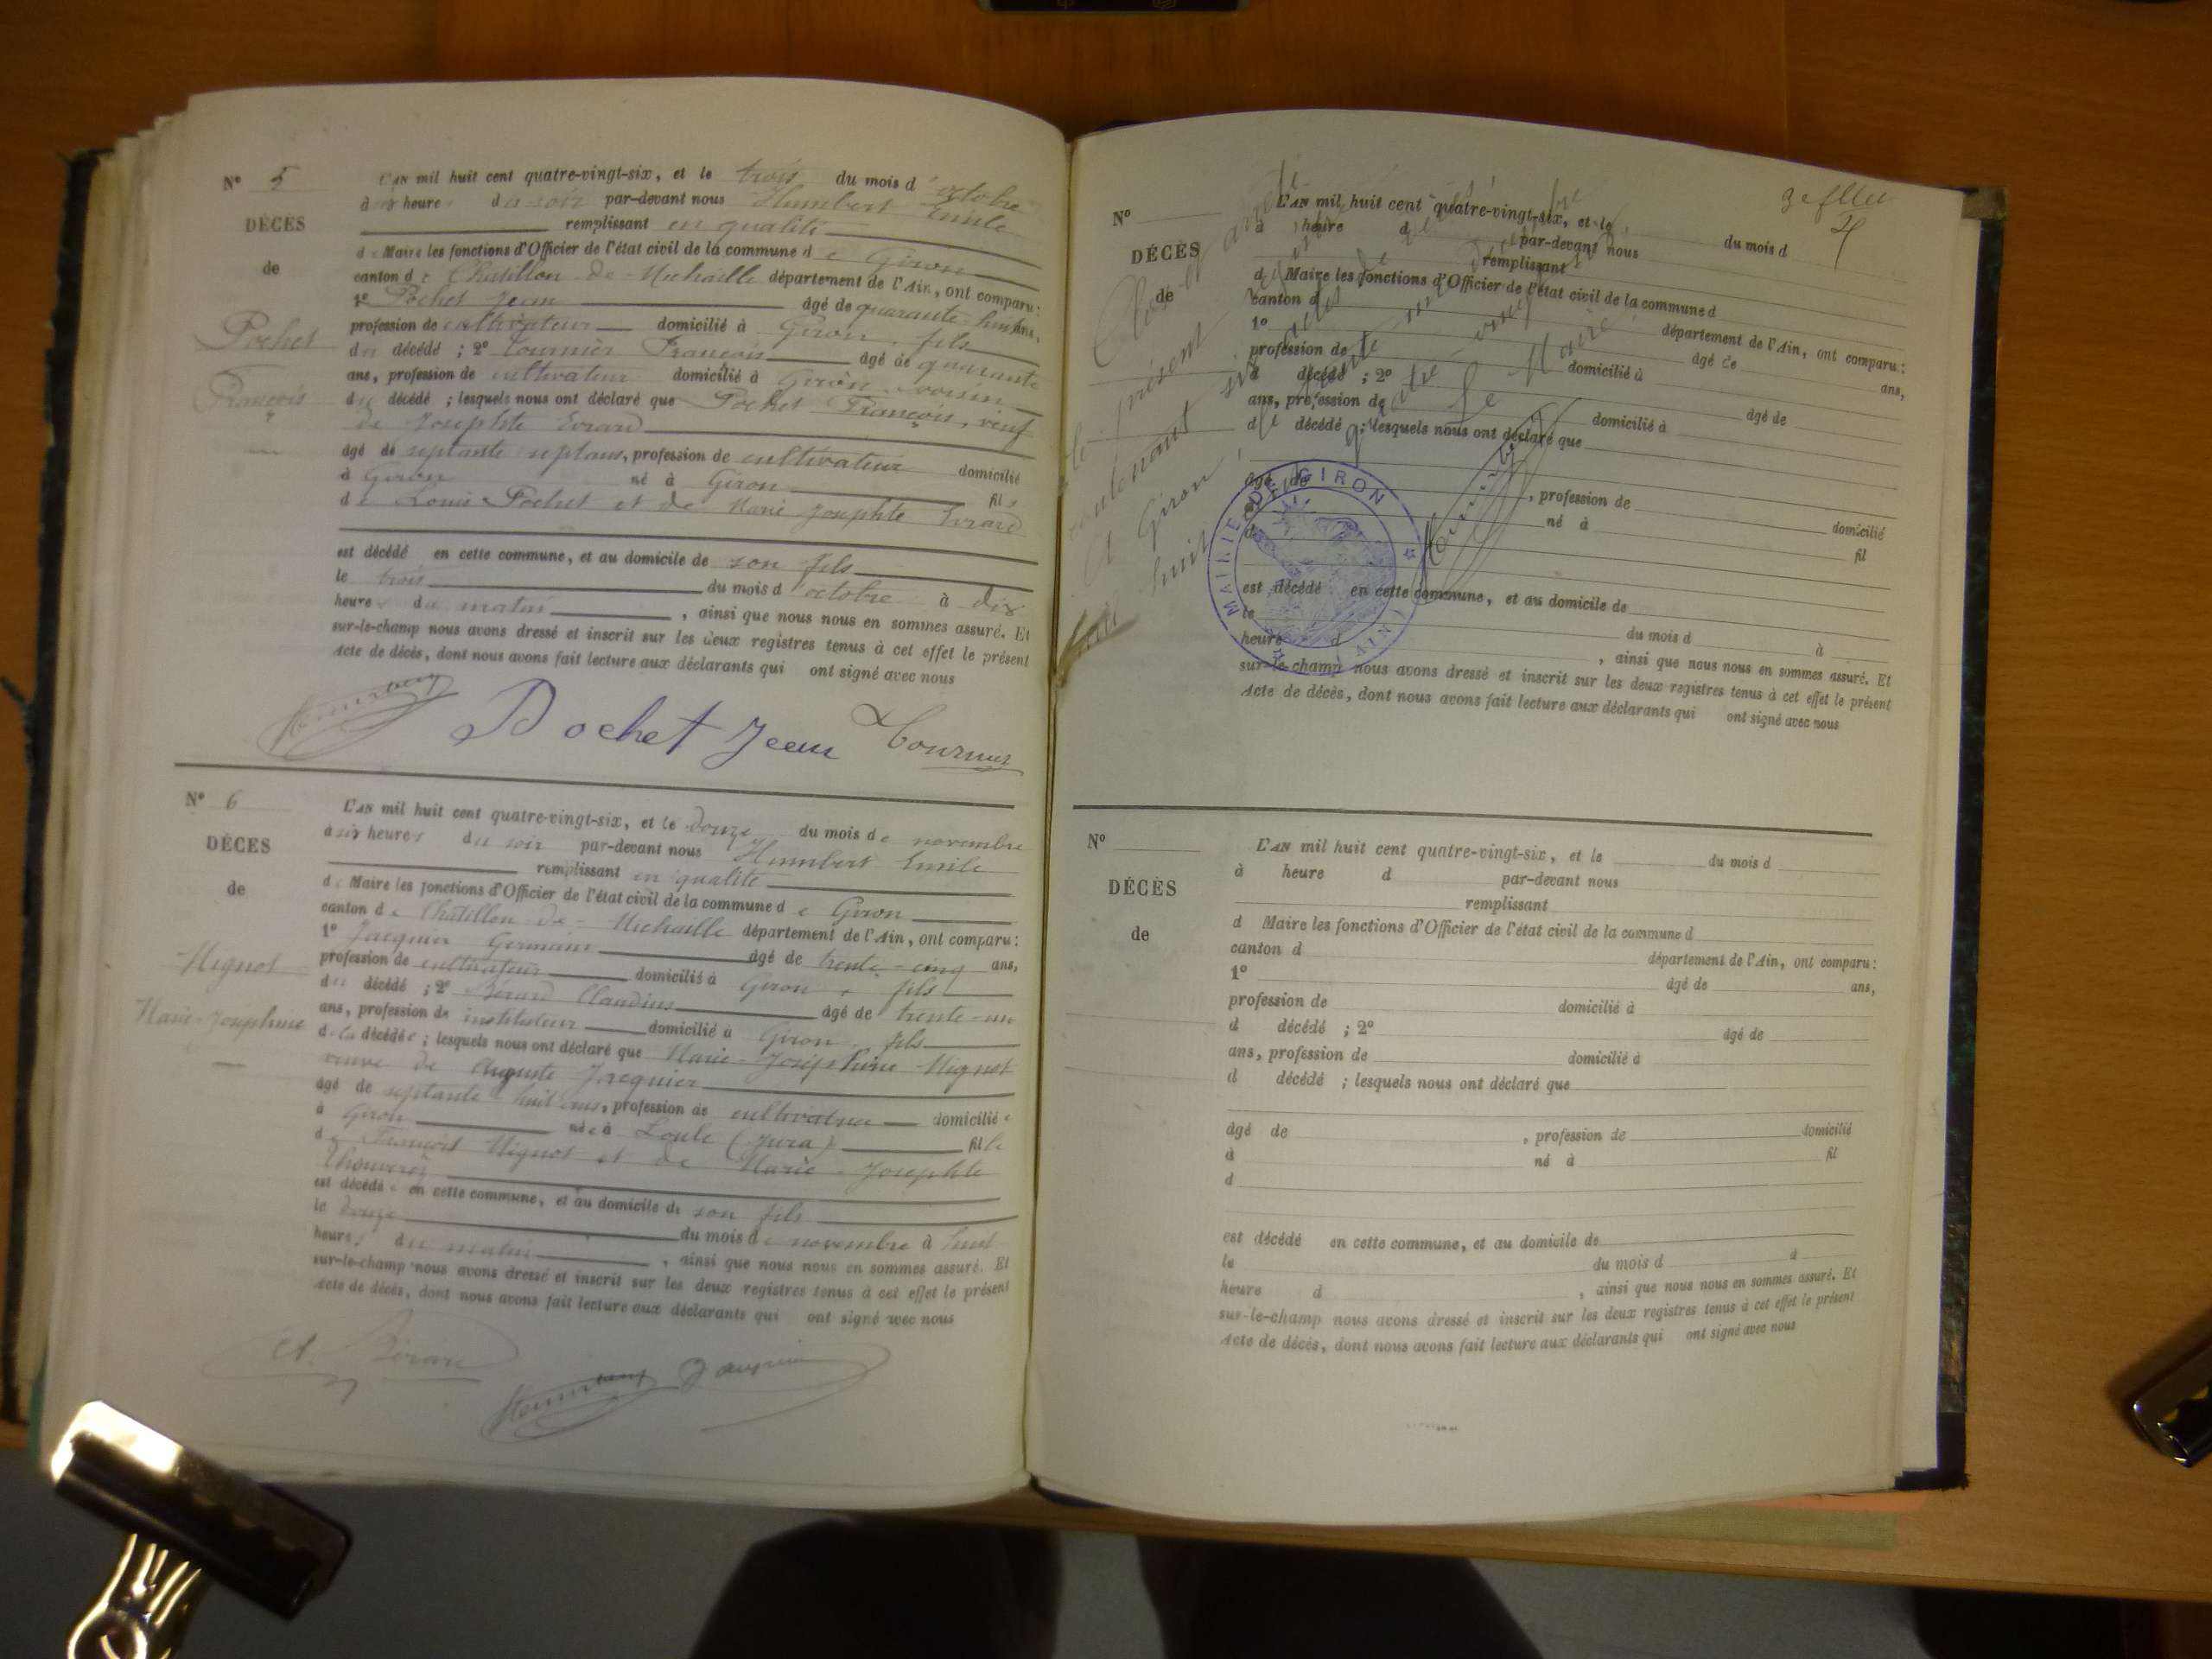 N° 5
DÉCÈS
de
Pochet
François
L'AN mil huit cent quatre-vingt-six, et le trois du mois d'octobre
à six heures du soir par-devant nous Humbert Emile
remplissant en qualité
de Maire les fonctions d'Officier de l'état civil de la commune de Giron
canton de Chatillon de Michaille département de l'Ain, ont comparu:
1° Pochet Jean âgé de quarante-huit ans,
profession de cultivateur domicilié à Giron, fils
du décédé; 2° Tournier François âgé de quarante
ans, profession de cultivateur domicilié à Giron voisin
du décédé; lesquels nous ont déclaré que Pochet François, veuf
de Josephte Evrard
âgé de septante sept ans, profession de cultivateur domicilié
à Giron né à Giron fils
de Louis Pochet et de Marie Josephte Evrard
est décédé en cette commune, et au domicile de son fils
le trois du mois d'octobre à dix
heures du matin, ainsi que nous nous en sommes assuré. Et
sur-le-champ nous avons dressé et inscrit sur les deux registres tenus à cet effet le présent
Acte de décès, dont nous avons fait lecture aux déclarants qui ont signé avec nous
Humbert Pochet Jean Tournier
N° 6
DÉCÈS
de
Mignot
Marie-Joséphine
L'AN mil huit cent quatre-vingt-six, et le douze du mois de novembre
à six heures du soir par-devant nous Humbert Emile
remplissant en qualité
de Maire les fonctions d'Officier de l'état civil de la commune de Giron
canton de Chatillon de Michaille département de l'Ain, ont comparu:
1° Jacquier Germain âgé de trente-cinq ans,
profession de cultivateur domicilié à Giron, fils
du décédé; 2° Bérard Claudius âgé de trente-un
ans, profession de instituteur domicilié à Giron fils
de la décédée; lesquels nous ont déclaré que Marie-Joséphine Mignot
veuve de Auguste Jacquier
âgé de septante-huit ans, profession de cultivateur domiciliée
à Giron née à (Jura) fille
de François Mignot et de Marie-Josephte
est décédée en cette commune, et au domicile de son fils
le douze du mois de novembre à huit
heures du matin, ainsi que nous nous en sommes assuré. Et
sur-le-champ nous avons dressé et inscrit sur les deux registres tenus à cet effet le présent
Acte de décès, dont nous avons fait lecture aux déclarants qui ont signé avec nous
Cl. Bérard Humbert Jacquier
N°
DÉCÈS
de
L'AN mil huit cent quatre-vingt-six, et le du mois d
à heure d par-devant nous
remplissant
d Maire les fonctions d'Officier de l'état civil de la commune d
canton d département de l'Ain, ont comparu:
1° âgé de ans,
profession de domicilié à
d décédé; 2° âgé de
ans, profession de domicilié à
d décédé; lesquels nous ont déclaré que
âgé de, profession de domicilié
à né à fil
d
est décédé en cette commune, et au domicile de
le du mois d à
heure d, ainsi que nous nous en sommes assuré. Et
sur-le-champ nous avons dressé et inscrit sur les deux registres tenus à cet effet le présent
Acte de décès, dont nous avons fait lecture aux déclarants qui ont signé avec nous
Clos et arrêté
le présent registre
contenant six actes de
A Giron, le
huit quatre-vingt
Le Maire
Humbert
MAIRIE DE GIRON
(AIN)
N°
DÉCÈS
de
L'AN mil huit cent quatre-vingt-six, et le du mois d
à heure d par-devant nous
remplissant
d Maire les fonctions d'Officier de l'état civil de la commune d
canton d département de l'Ain, ont comparu:
1° âgé de ans,
profession de domicilié à
d décédé; 2° âgé de
ans, profession de domicilié à
d décédé; lesquels nous ont déclaré que
âgé de, profession de domicilié
à né à fil
d
est décédé en cette commune, et au domicile de
le du mois d à
heure d, ainsi que nous nous en sommes assuré. Et
sur-le-champ nous avons dressé et inscrit sur les deux registres tenus à cet effet le présent
Acte de décès, dont nous avons fait lecture aux déclarants qui ont signé avec nous